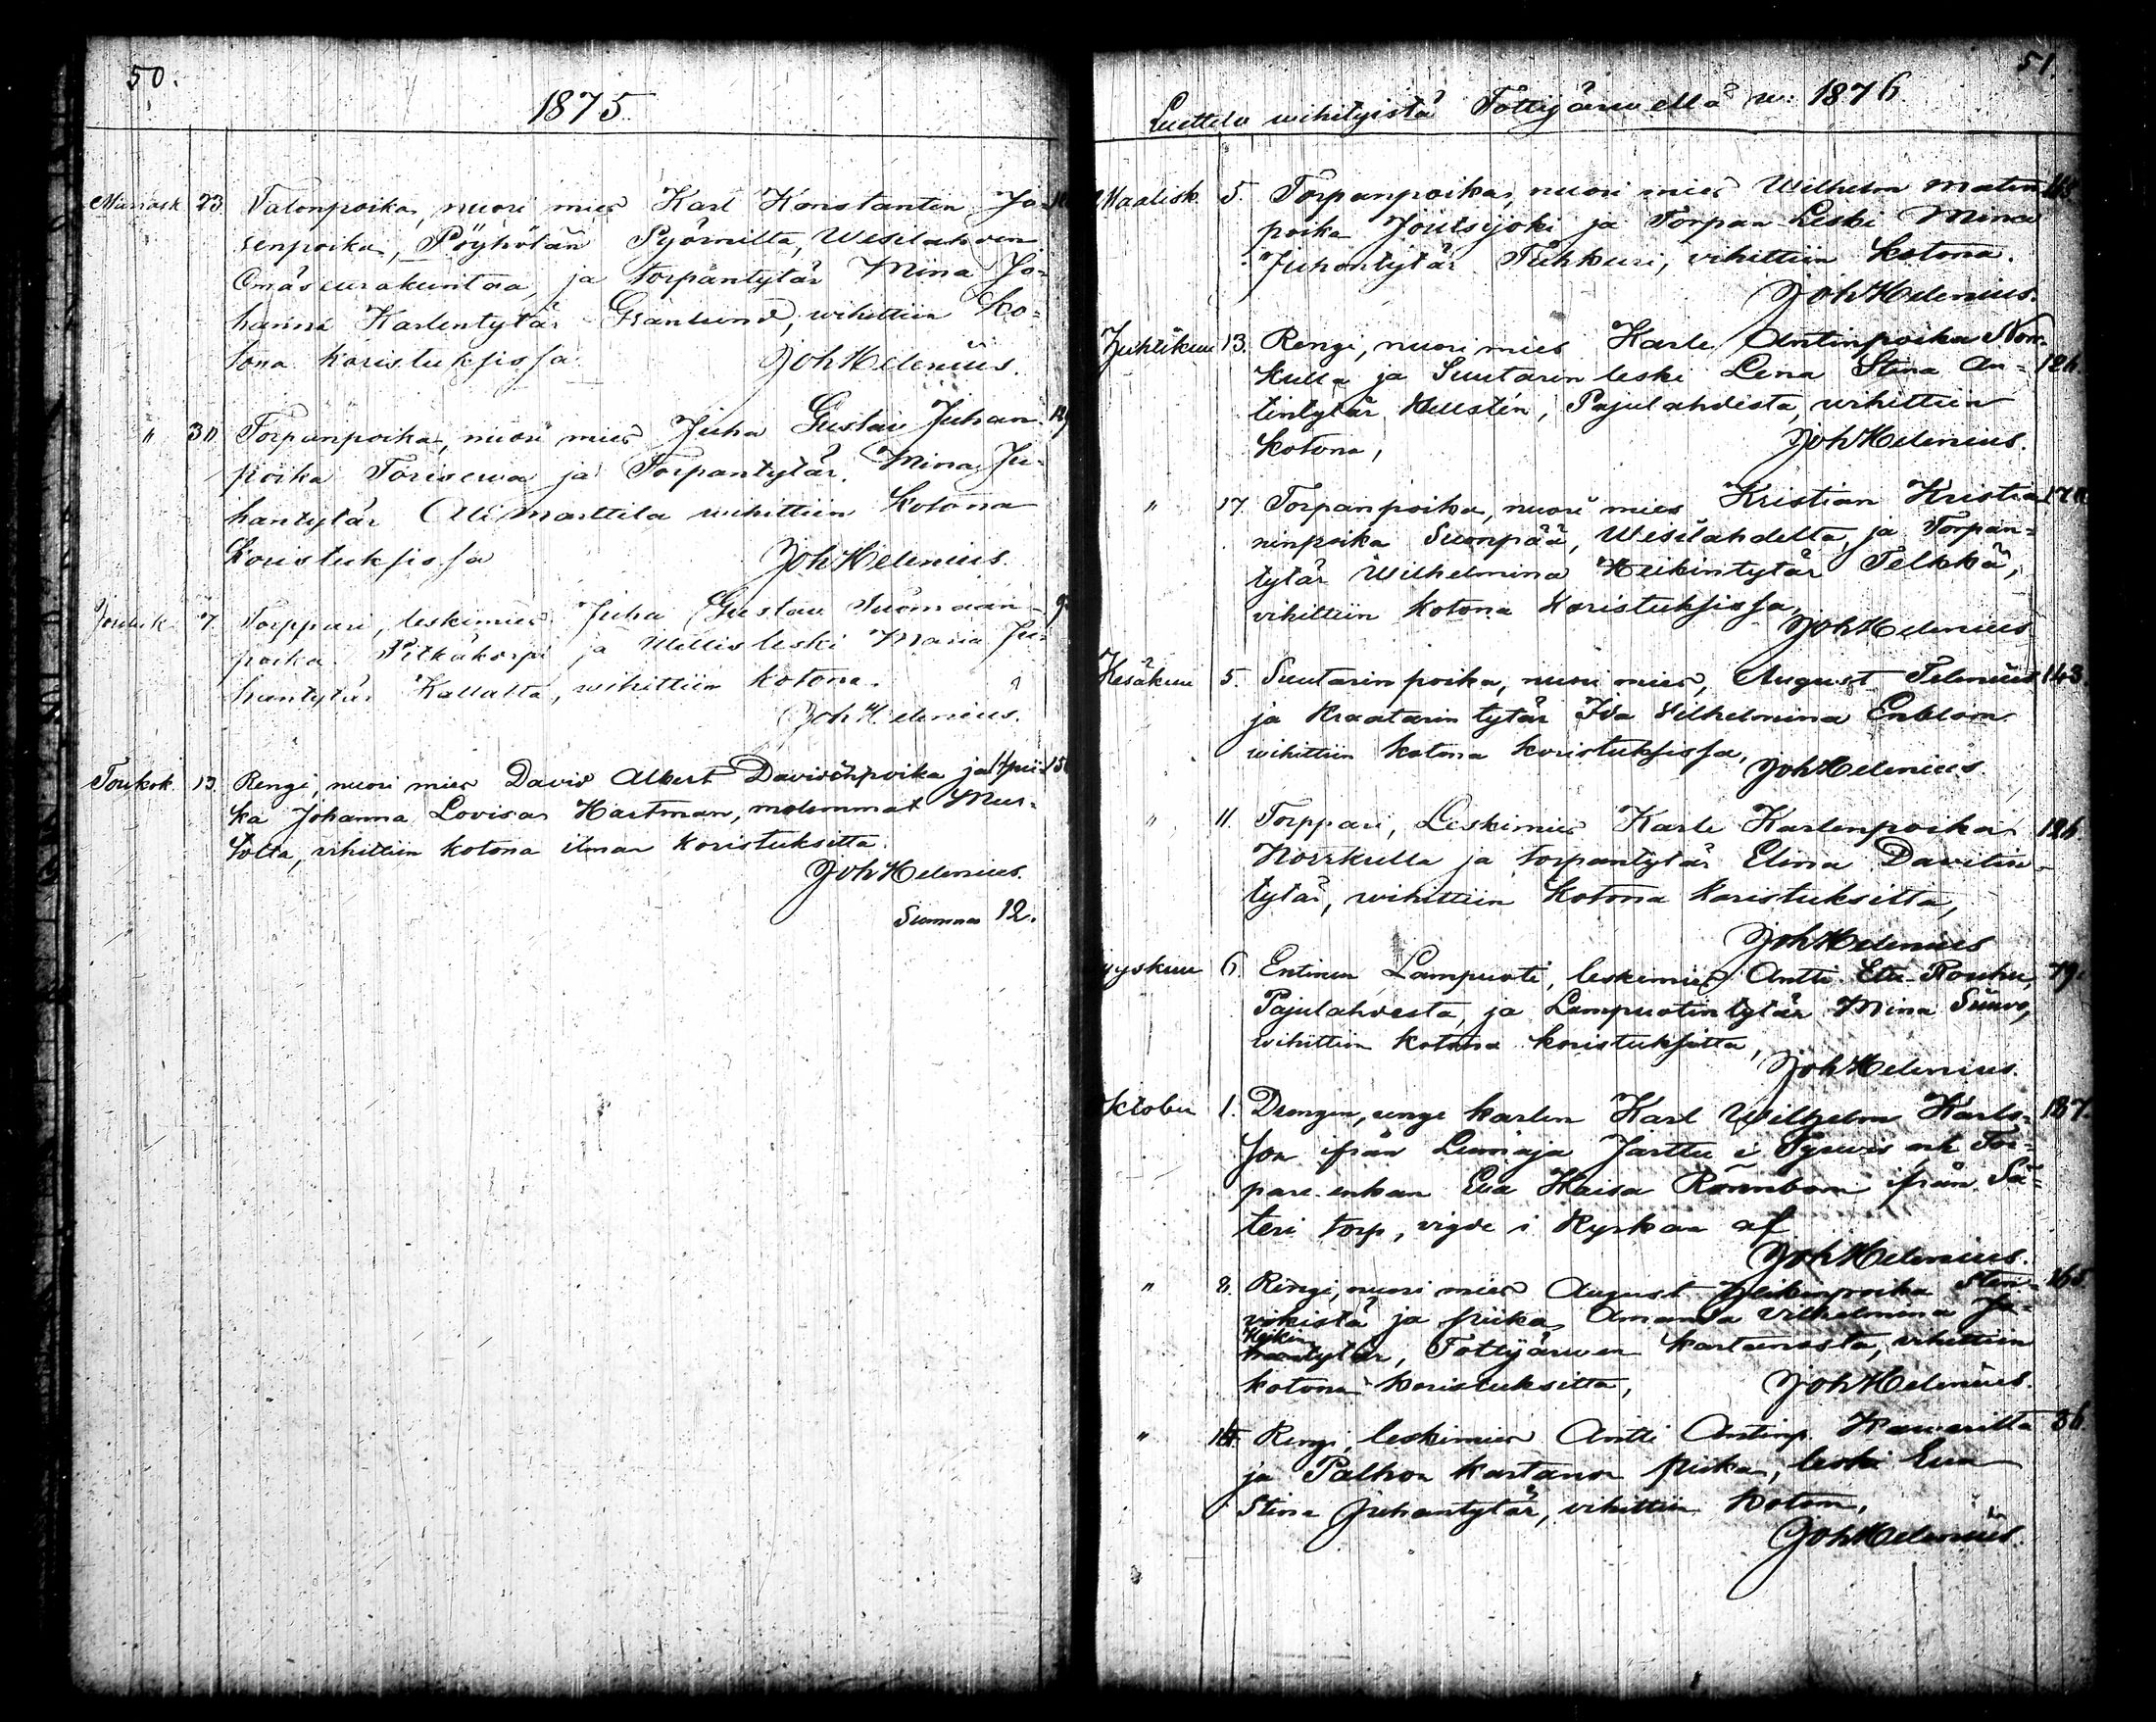 50.
1875
Marrask. 23. Talonpoika, nuori mies Karl Konstantin Jo-
senpoika, Pöyhölän Syörniltä, Wesilahden
Emäseurakuntaa, ja torpantytär Mina Jo-
hanna Karlentytär Granlund, wihittiin ko-
tona koristuksissa. Joh Helenius.
" 30. Torpanpoika, nuori mies Juha Gustav Juhan- 129
poika Torisewa ja Torpantytär Mina Ju-
hantytär Ali Marttila wihittiin kotona
koristuksissa Joh Helenius.
Jouluk. 7. Torppari, leskimies Juha Gustav Tuomaan-
poika Pitkäkorpi ja leski Maria Ju-
hantytär Kallalta, wihittiin kotona.
Joh Helenius.
Toukok. 13. Rengi, nuori mies David Albert Davidinpoika ja pii-
ka Johanna Lovisa Hartman, molemmat
vihittiin kotona ilman koristuksitta.
Joh Helenius.
Summa 12.
51.
Luettelo wihityistä Tottijärwellä w: 1876
Maalisk. 5. Torpanpoika, nuori mies Wilhelm Matin-
poika Joutsijoki ja Torpan Leski Mina
Juhontytär Tuhkuri, vihittiin kotona.
Joh Helenius.
Huhtikuu 13. Rengi, nuori mies Karle Antinpoika Nor-
kulla ja Suutarin leski Lena Stina An- 126
tintytär Hellstén, Pajulahdesta, wihittiin
kotona, Joh Helenius.
" 17. Torpanpoika, nuori mies Kristian Kristia-
ninpoika Suonpää, Wesilahdelta, ja Torpan-
tytär Wilhelmina Heikintytär Telkkä,
vihittiin kotona koristuksissa,
Joh Helenius
Kesäkuu 5. Suutarin poika, nuori mies, August Telenius 143
ja Kraatarin tytär Ida Vilhelmina Enblom
wihittiin kotona koristuksissa,
Joh Helenius.
" 11. Torppari, Leskimies Karle Karlenpoika 126.
Norrkulla ja torpantytär Elina Davitin-
tytär, wihittiin kotona koristuksitta,
Joh Helenius
Syyskuu 6. Entinen Lampuoti, leskimies Antti Rouhu, 79.
Pajulahdesta, ja Lampuotin tytär Mina
wihittiin kotona koristuksitta,
Joh Helenius.
Oktober 1. Drengen, unge karlen Karl Wilhelm Karls- 187.
son ifrån Lumiaja Jarttu i Tyrwis och Tor-
pare enkan Eva Kaisa Rönnbom ifrån Sä-
teri torp, vigde i Kyrkan af
Joh Helenius.
" 8. Rengi, nuori mies August Heikinpoika Sten- 165
vikistä ja piika Amanda Vilhelmina Ju-
Heikin
hantytär, Tottijärwen kartanosta, vihittiin
kotona koristuksitta, Joh Helenius.
" Rengi, leskimies Antti Antinp. 36
ja Palhon kartanon piika, leski Eva
Stina Juhantytär, vihittiin kotona,
Joh Helenius.